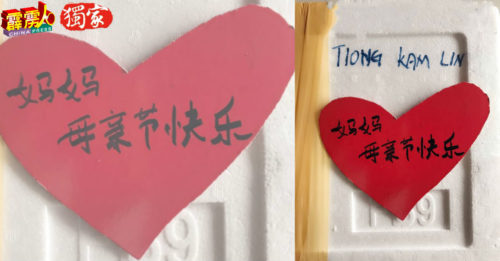 霹雳人
CHINA PRESS
獨家
妈妈
母亲节快乐
TIONG KAM LIN
妈妈
母亲节快乐